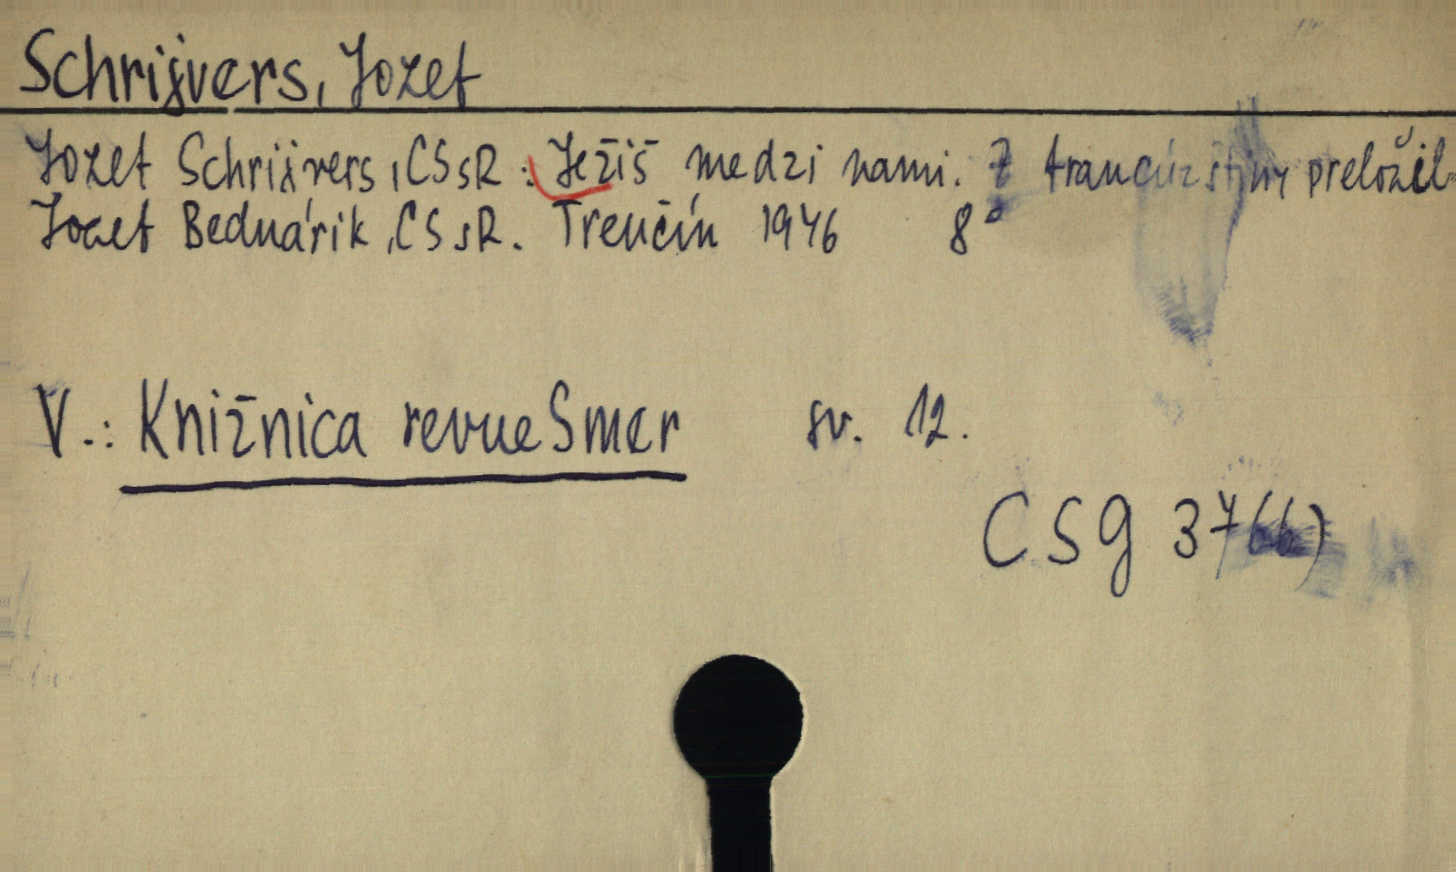 Schrijvers, Jozef
Jozef Schrijvers, CSsR: Ježiš medzi nami. Z francúzštiny preložil
Jozef Bednárik, CSsR. Trenčín 1946 8°
V.: Knižnica revue Smer sv. 12.
CSg 37(6)